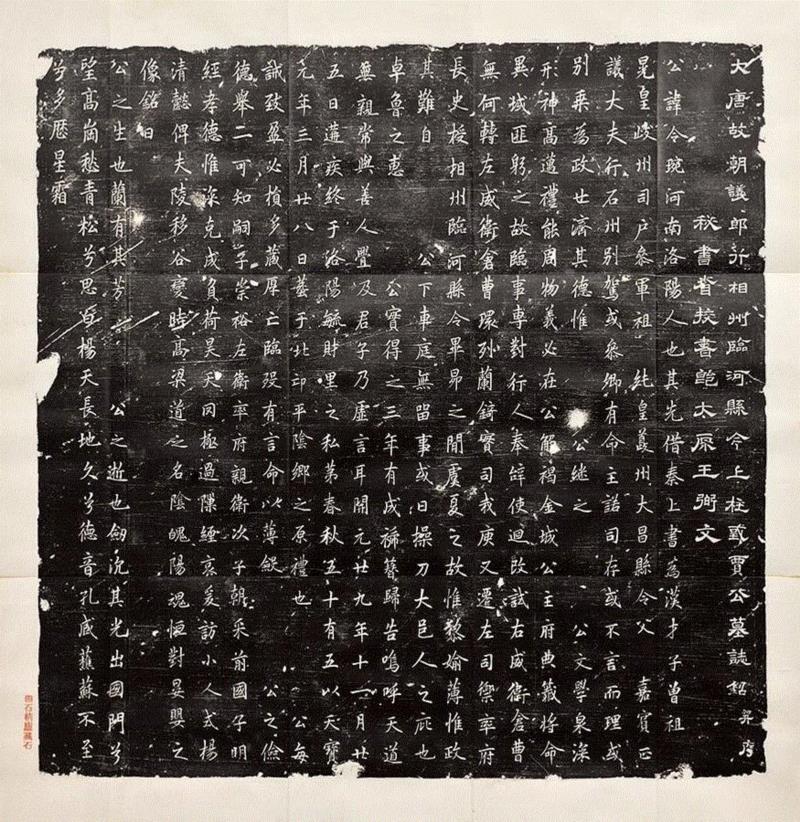 大唐故朝議郎行相州臨河縣令上柱國賈公墓誌銘并序
秘書省校書郎太原王弼文
公諱令琬河南洛陽人也其先借秦上書為漢才子曾祖
晃皇岐州司戶參軍祖 純皇義州大昌縣令父 嘉賓正
議大夫行石州別駕或參卿有命主諾司存或不言而理或
別乘為政世濟其德惟 公繼之 公文學泉深
形神高邁禮能周物義必在公解褐金城公主府典籤將命
異域匪躬之故臨事專對行人奉辞使迴改試右威衛倉曹
無何轉左威衛倉曹環列蘭錡實司我庾又遷左司禦率府
長史授相州臨河縣令畢昴之間虞夏之故惟黎婾薄惟政
其難自 公下車庭無留事或曰操刀大邑人之庇也
卓魯之惠 公實得之三年有成稀簪歸告嗚呼天道
無親常與善人舋及君子乃虛言耳開元廿九年十一月廿
五日遘疾終于洛陽毓財里之私第春秋五十有五以天寶
元年三月廿八日葬于北邙平陰鄉之原禮也 公每
誡致盈必損多藏厚亡臨歿有言命以薄殮 公之儉
德舉二可知嗣子崇裕左衛率府親衛次子朝采前國子明
經孝德惟深克成負荷昊天罔極過隙纏哀爰訪小人式揚
清懿俾夫陵移谷變時高梁道之名陰魄陽魂恒對晏嬰之
像銘曰
公之生也蘭有其芳 公之逝也劒沉其光出國門兮
望高崗愁青松兮思白楊天長地久兮德音孔臧蕪蘇不至
兮多歷星霜